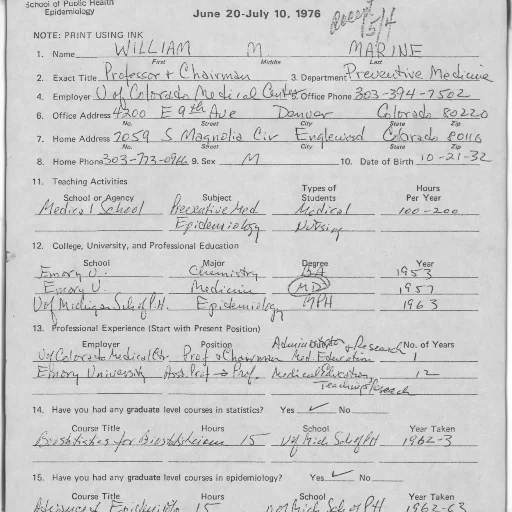 School of Public Health
Epidemiology
June 20-July 10, 1976
NOTE: PRINT USING INK
1. Name WILLIAM M. MARINE
First Middle Last
2. Exact Title Professor + Chairman 3. Department Preventive Medicine
4. Employer U of Colorado Medical Center 5. Office Phone 303-394-7502
6. Office Address 4200 E 9th Ave Denver Colorado 80220
No. Street City State Zip
7. Home Address 7059 S Magnolia Cir Englewood Colorado 80110
No. Street City State Zip
8. Home Phone 303-773-0966 9. Sex M 10. Date of Birth 10-21-32
11. Teaching Activities
School or Agency Subject Types of Students Hours Per Year
Medical School Preventive Med Medical 100-200
Epidemiology Nursing
12. College, University, and Professional Education
School Major Degree Year
Emory U. Chemistry BA 1953
Emory U. Medicine MD 1957
U of Michigan Sch of P.H. Epidemiology MPH 1963
13. Professional Experience (Start with Present Position)
Employer Position Administrator + Research No. of Years
U of Colorado Medical Ctr. Prof + Chairman Med. Education 1
Emory University Asst Prof → Prof. Medical Education, 12
Teaching Research
14. Have you had any graduate level courses in statistics? Yes ✓ No
Course Title Hours School Year Taken
Biostatistics for Biostatisticians 15 U of Mich Sch of PH 1962-3
15. Have you had any graduate level courses in epidemiology? Yes ✓ No
Course Title Hours School Year Taken
Advanced Epidemiology 15 U of Mich Sch of PH 1962-63